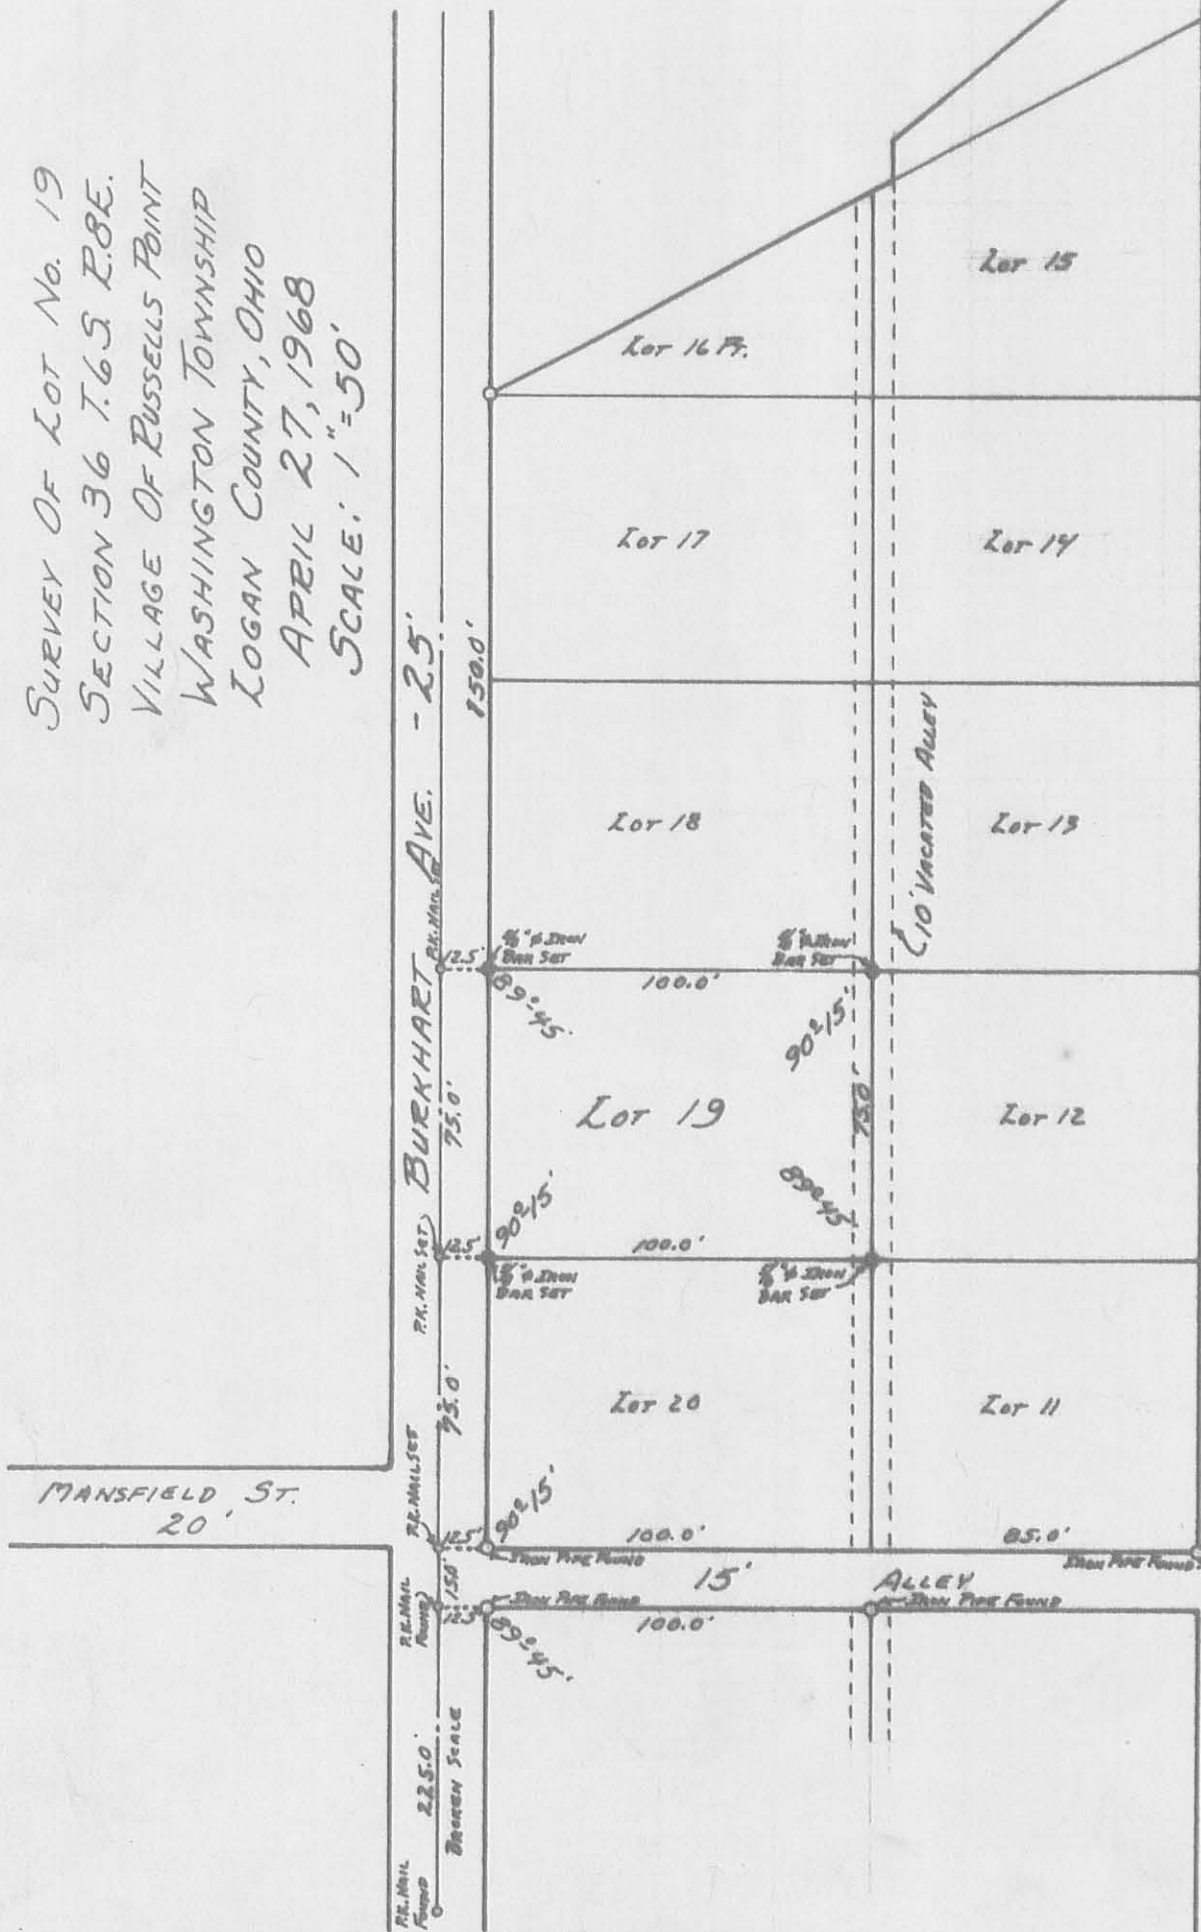 SURVEY OF LOT No. 19
SECTION 36 T.6S. R.8E.
VILLAGE OF RUSSELLS POINT
WASHINGTON TOWNSHIP
LOGAN COUNTY, OHIO
APRIL 27, 1968
SCALE: 1"=50'
Lot 15
Lot 16 Pt.
Lot 17
Lot 14
150.0'
BURKHART AVE. - 25'
Lot 18
Lot 13
10' VACATED ALLEY
P.K. NAIL SET
12.5'
5/8" ø IRON
BAR SET
5/8" ø IRON
BAR SET
100.0'
89°-45'
90°-15'
75.0'
Lot 19
75.0'
Lot 12
90°-15'
89°-45'
P.K. NAIL SET
12.5'
100.0'
5/8" ø IRON
BAR SET
5/8" ø IRON
BAR SET
75.0'
Lot 20
Lot 11
MANSFIELD ST.
20'
P.K. NAIL SET
12.5'
90°-15'
100.0'
85.0'
IRON PIPE FOUND
IRON PIPE FOUND
15' ALLEY
15.0'
P.K. NAIL
FOUND
12.5'
IRON PIPE FOUND
IRON PIPE FOUND
100.0'
89°-45'
225.0'
BROKEN SCALE
P.K. NAIL
FOUND